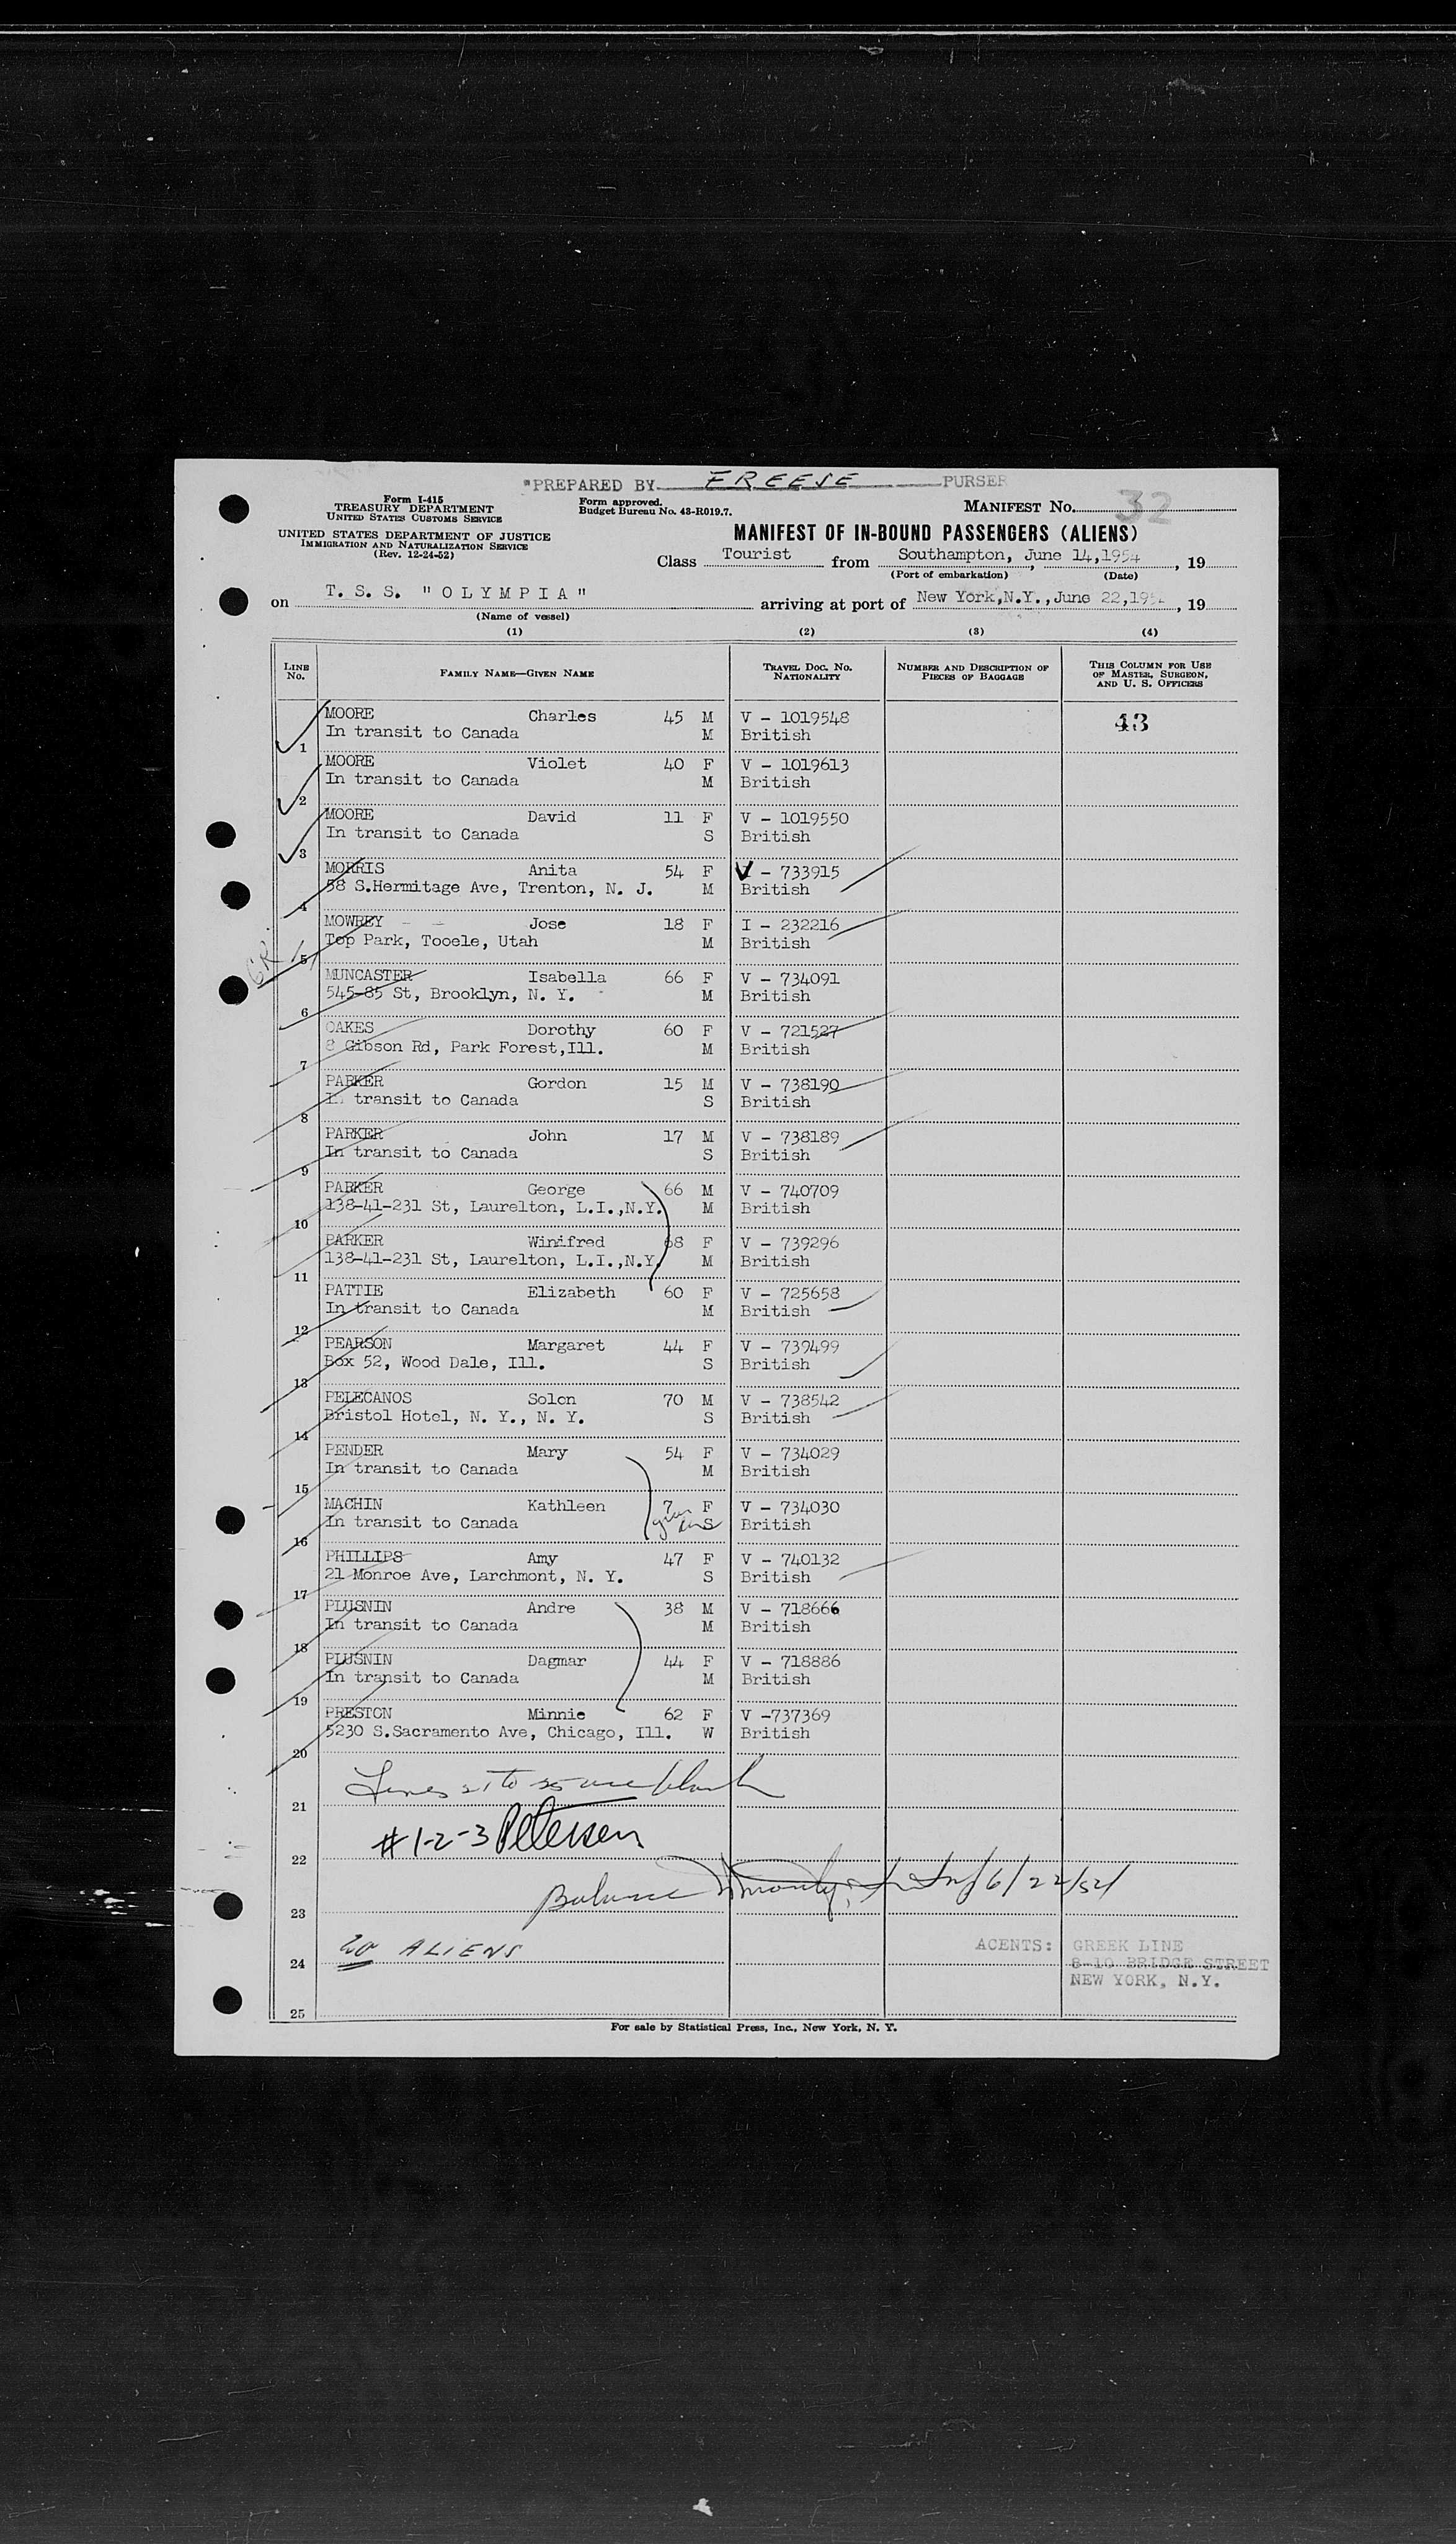 "PREPARED BY FREESE PURSER
Form I-415
TREASURY DEPARTMENT
UNITED STATES CUSTOMS SERVICE
UNITED STATES DEPARTMENT OF JUSTICE
IMMIGRATION AND NATURALIZATION SERVICE
(Rev. 12-24-52)
Form approved.
Budget Bureau No. 43-R019.7.
MANIFEST No. 32
MANIFEST OF IN-BOUND PASSENGERS (ALIENS)
Class Tourist from Southampton, June 14,1954, 19
(Port of embarkation) (Date)
on T. S. S. "OLYMPIA" arriving at port of New York,N.Y.,June 22,195 , 19
(Name of vessel)
(1) (2) (3) (4)
LINE No. FAMILY NAME—GIVEN NAME TRAVEL DOC. NO. NATIONALITY NUMBER AND DESCRIPTION OF PIECES OF BAGGAGE THIS COLUMN FOR USE OF MASTER, SURGEON, AND U. S. OFFICERS
MOORE Charles 45 M V - 1019548 43
1 In transit to Canada M British
MOORE Violet 40 F V - 1019613
2 In transit to Canada M British
MOORE David 11 F V - 1019550
3 In transit to Canada S British
MORRIS Anita 54 F V - 733915
4 58 S.Hermitage Ave, Trenton, N. J. M British
MOWREY Jose 18 F I - 232216
5 Top Park, Tooele, Utah M British
MUNCASTER Isabella 66 F V - 734091
6 545-85 St, Brooklyn, N. Y. M British
OAKES Dorothy 60 F V - 721527
7 8 Gibson Rd, Park Forest,Ill. M British
PARKER Gordon 15 M V - 738190
8 In transit to Canada S British
PARKER John 17 M V - 738189
9 In transit to Canada S British
PARKER George 66 M V - 740709
10 138-41-231 St, Laurelton, L.I.,N.Y. M British
PARKER Winifred 68 F V - 739296
11 138-41-231 St, Laurelton, L.I.,N.Y. M British
PATTIE Elizabeth 60 F V - 725658
12 In transit to Canada M British
PEARSON Margaret 44 F V - 739499
13 Box 52, Wood Dale, Ill. S British
PELECANOS Solon 70 M V - 738542
14 Bristol Hotel, N. Y., N. Y. S British
PENDER Mary 54 F V - 734029
15 In transit to Canada M British
MACHIN Kathleen 7 F V - 734030
16 In transit to Canada S British
PHILLIPS Amy 47 F V - 740132
17 21 Monroe Ave, Larchmont, N. Y. S British
PLUSNIN Andre 38 M V - 718666
18 In transit to Canada M British
PLUSNIN Dagmar 44 F V - 718886
19 In transit to Canada M British
PRESTON Minnie 62 F V -737369
20 5230 S.Sacramento Ave, Chicago, Ill. W British
21 Lines 21 to 25 are blank
22 #1-2-3 Petersen
23 Balance 6/22/54
24 20 ALIENS AGENTS: GREEK LINE
8-10 BRIDGE STREET
NEW YORK, N.Y.
25
For sale by Statistical Press, Inc., New York, N. Y.